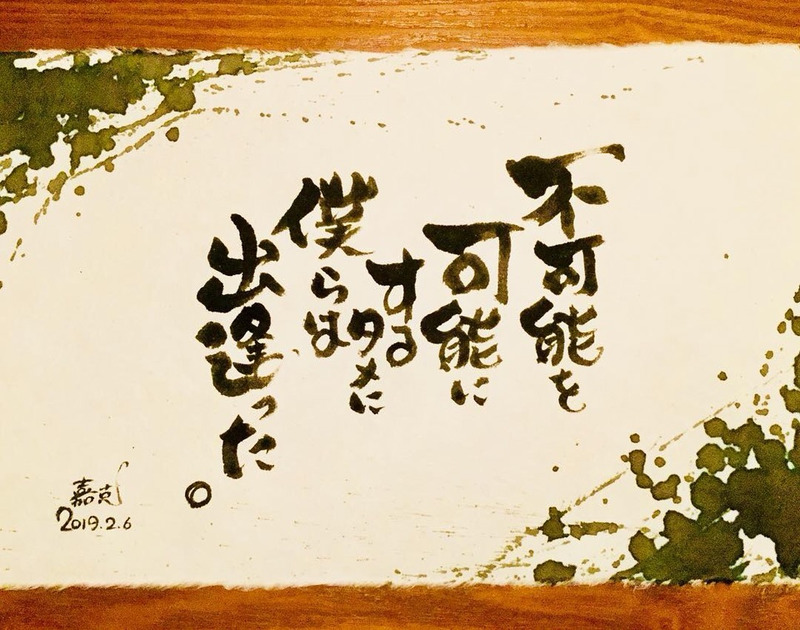 不可能を
可能に
する
タメに
僕らは
出逢った。
嘉
2019.2.6